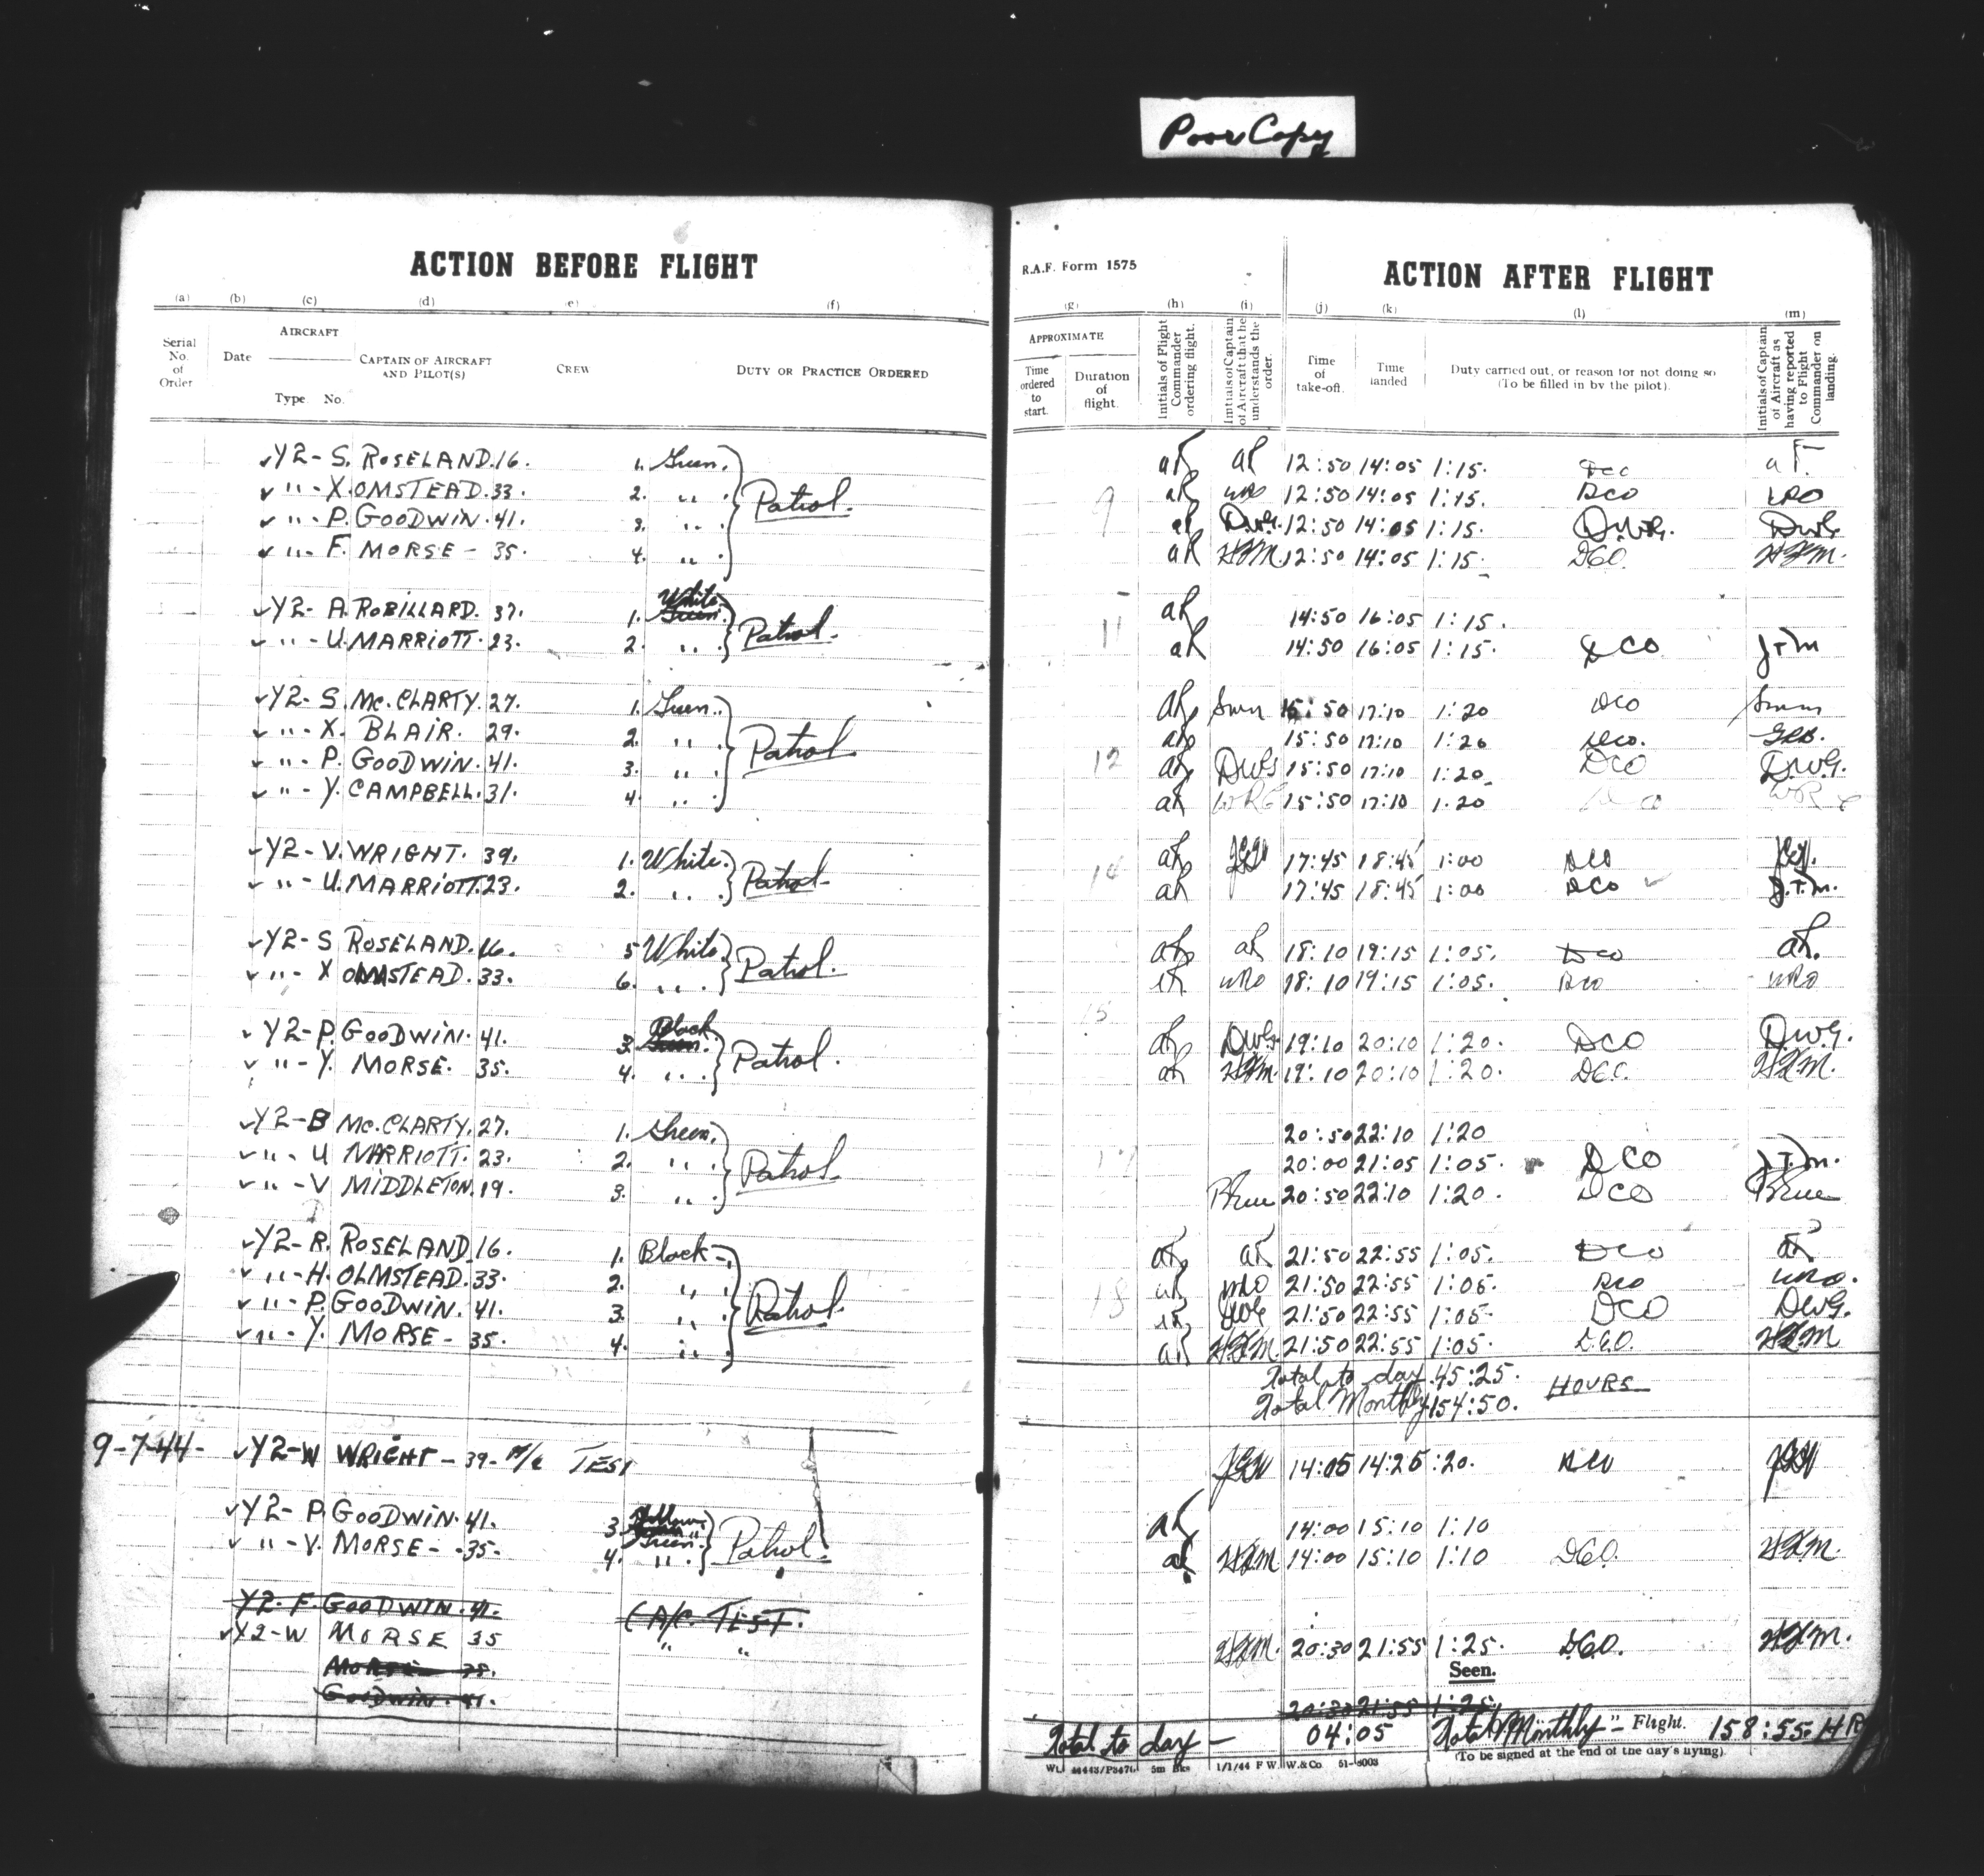 Poor Copy
ACTION BEFORE FLIGHT
(a) (b) (c) (d) (e) (f)
Serial No. of Order
Date
AIRCRAFT
Type No.
CAPTAIN OF AIRCRAFT AND PILOT(S)
CREW
DUTY OR PRACTICE ORDERED
R.A.F. Form 1575
ACTION AFTER FLIGHT
(g) (h) (i) (j) (k) (l) (m)
APPROXIMATE
Time ordered to start.
Duration of flight.
Initials of Flight Commander ordering flight.
Initials of Captain of Aircraft that he understands the order.
Time of take-off.
Time landed
Duty carried out, or reason for not doing so (To be filled in by the pilot).
Initials of Captain of Aircraft as having reported to Flight Commander on landing.
Y2-S. ROSELAND. 16. 1. Green. 12:50 14:05 1:15.
" - X. OMSTEAD. 33. 2. " Patrol. 9 WRO 12:50 14:05 1:15. DCO WRO
" - P. GOODWIN. 41. 3. " D.W.G. 12:50 14:05 1:15. D.W.G. DWG
" - F. MORSE - 35. 4. " HFM 12:50 14:05 1:15. DCO. HFM.
Y2- A. ROBILLARD. 37. 1. White. Green. Patrol. 11 14:50 16:05 1:15.
" - U. MARRIOTT. 23. 2. " 14:50 16:05 1:15. DCO JTM
Y2- S. Mc.CLARTY. 27. 1. Green. 15:50 17:10 1:20 DCO
" - X. BLAIR. 29. 2. " Patrol. 15:50 17:10 1:20 DCO.
" - P. GOODWIN. 41. 3. " 12 DWG 15:50 17:10 1:20 DCO D.W.G.
" - Y. CAMPBELL. 31. 4. " 15:50 17:10 1.20 DCO
Y2- V. WRIGHT. 39. 1. White. Patrol. 14 17:45 18:45 1:00 DCO
" - U. MARRIOTT. 23. 2. " 17:45 18:45 1:00 DCO J.T.M.
Y2- S ROSELAND. 16. 5 White Patrol. 18:10 19:15 1:05. DCO
" - X OMSTEAD. 33. 6. " WRO 18:10 19:15 1:05. DCO WRO
15
Y2-P. GOODWIN. 41. 3. Black Green. Patrol. DWG. 19:10 20:10 1:20. DCO D.W.G.
" - Y. MORSE. 35. 4. " HFM. 19:10 20:10 1:20. DCO. HFM.
Y2-B Mc.CLARTY. 27. 1. Green. 20:50 22:10 1:20
" - U MARRIOTT. 23. 2. " Patrol. 17 20:00 21:05 1:05. DCO J.T.M.
" - V MIDDLETON. 19. 3. " 20:50 22:10 1:20. DCO
Y2-R. ROSELAND 16. 1. Black - 21:50 22:55 1:05. DCO
" - H. OLMSTEAD. 33. 2. " Patrol. WRO 21:50 22:55 1:05. DCO WRO.
" - P. GOODWIN. 41. 3. " 18 DWG 21:50 22:55 1:05. DCO DWG.
" - Y. MORSE - 35. 4. " HFM. 21:50 22:55 1:05. D.C.O. HFM
Total to day. 45:25.
Total Monthly 154:50. HOURS
9-7-44- Y2-W WRIGHT - 39- A/C TEST JGW 14:05 14:25 :20. DCO JGW
Y2- P. GOODWIN. 41. 3. Yellow Patrol. 14:00 15:10 1:10
" - V. MORSE - 35- 4. " HFM 14:00 15:10 1:10 DCO. HFM.
Y2- F. GOODWIN. 41. (A/C TEST.
Y2-W MORSE 35 " " HFM. 20:30 21:55 1:25. DCO. HFM.
MORSE 35.
Seen.
Goodwin. 41. 20:30 21:55 1:25.
Total to day - 04:05 Total Monthly " - Flight. 158:55 HR
(To be signed at the end of the day's flying)
Wt. 44443/P3471 5m Bks 1/1/44 F.W.W.&Co. 51-8003